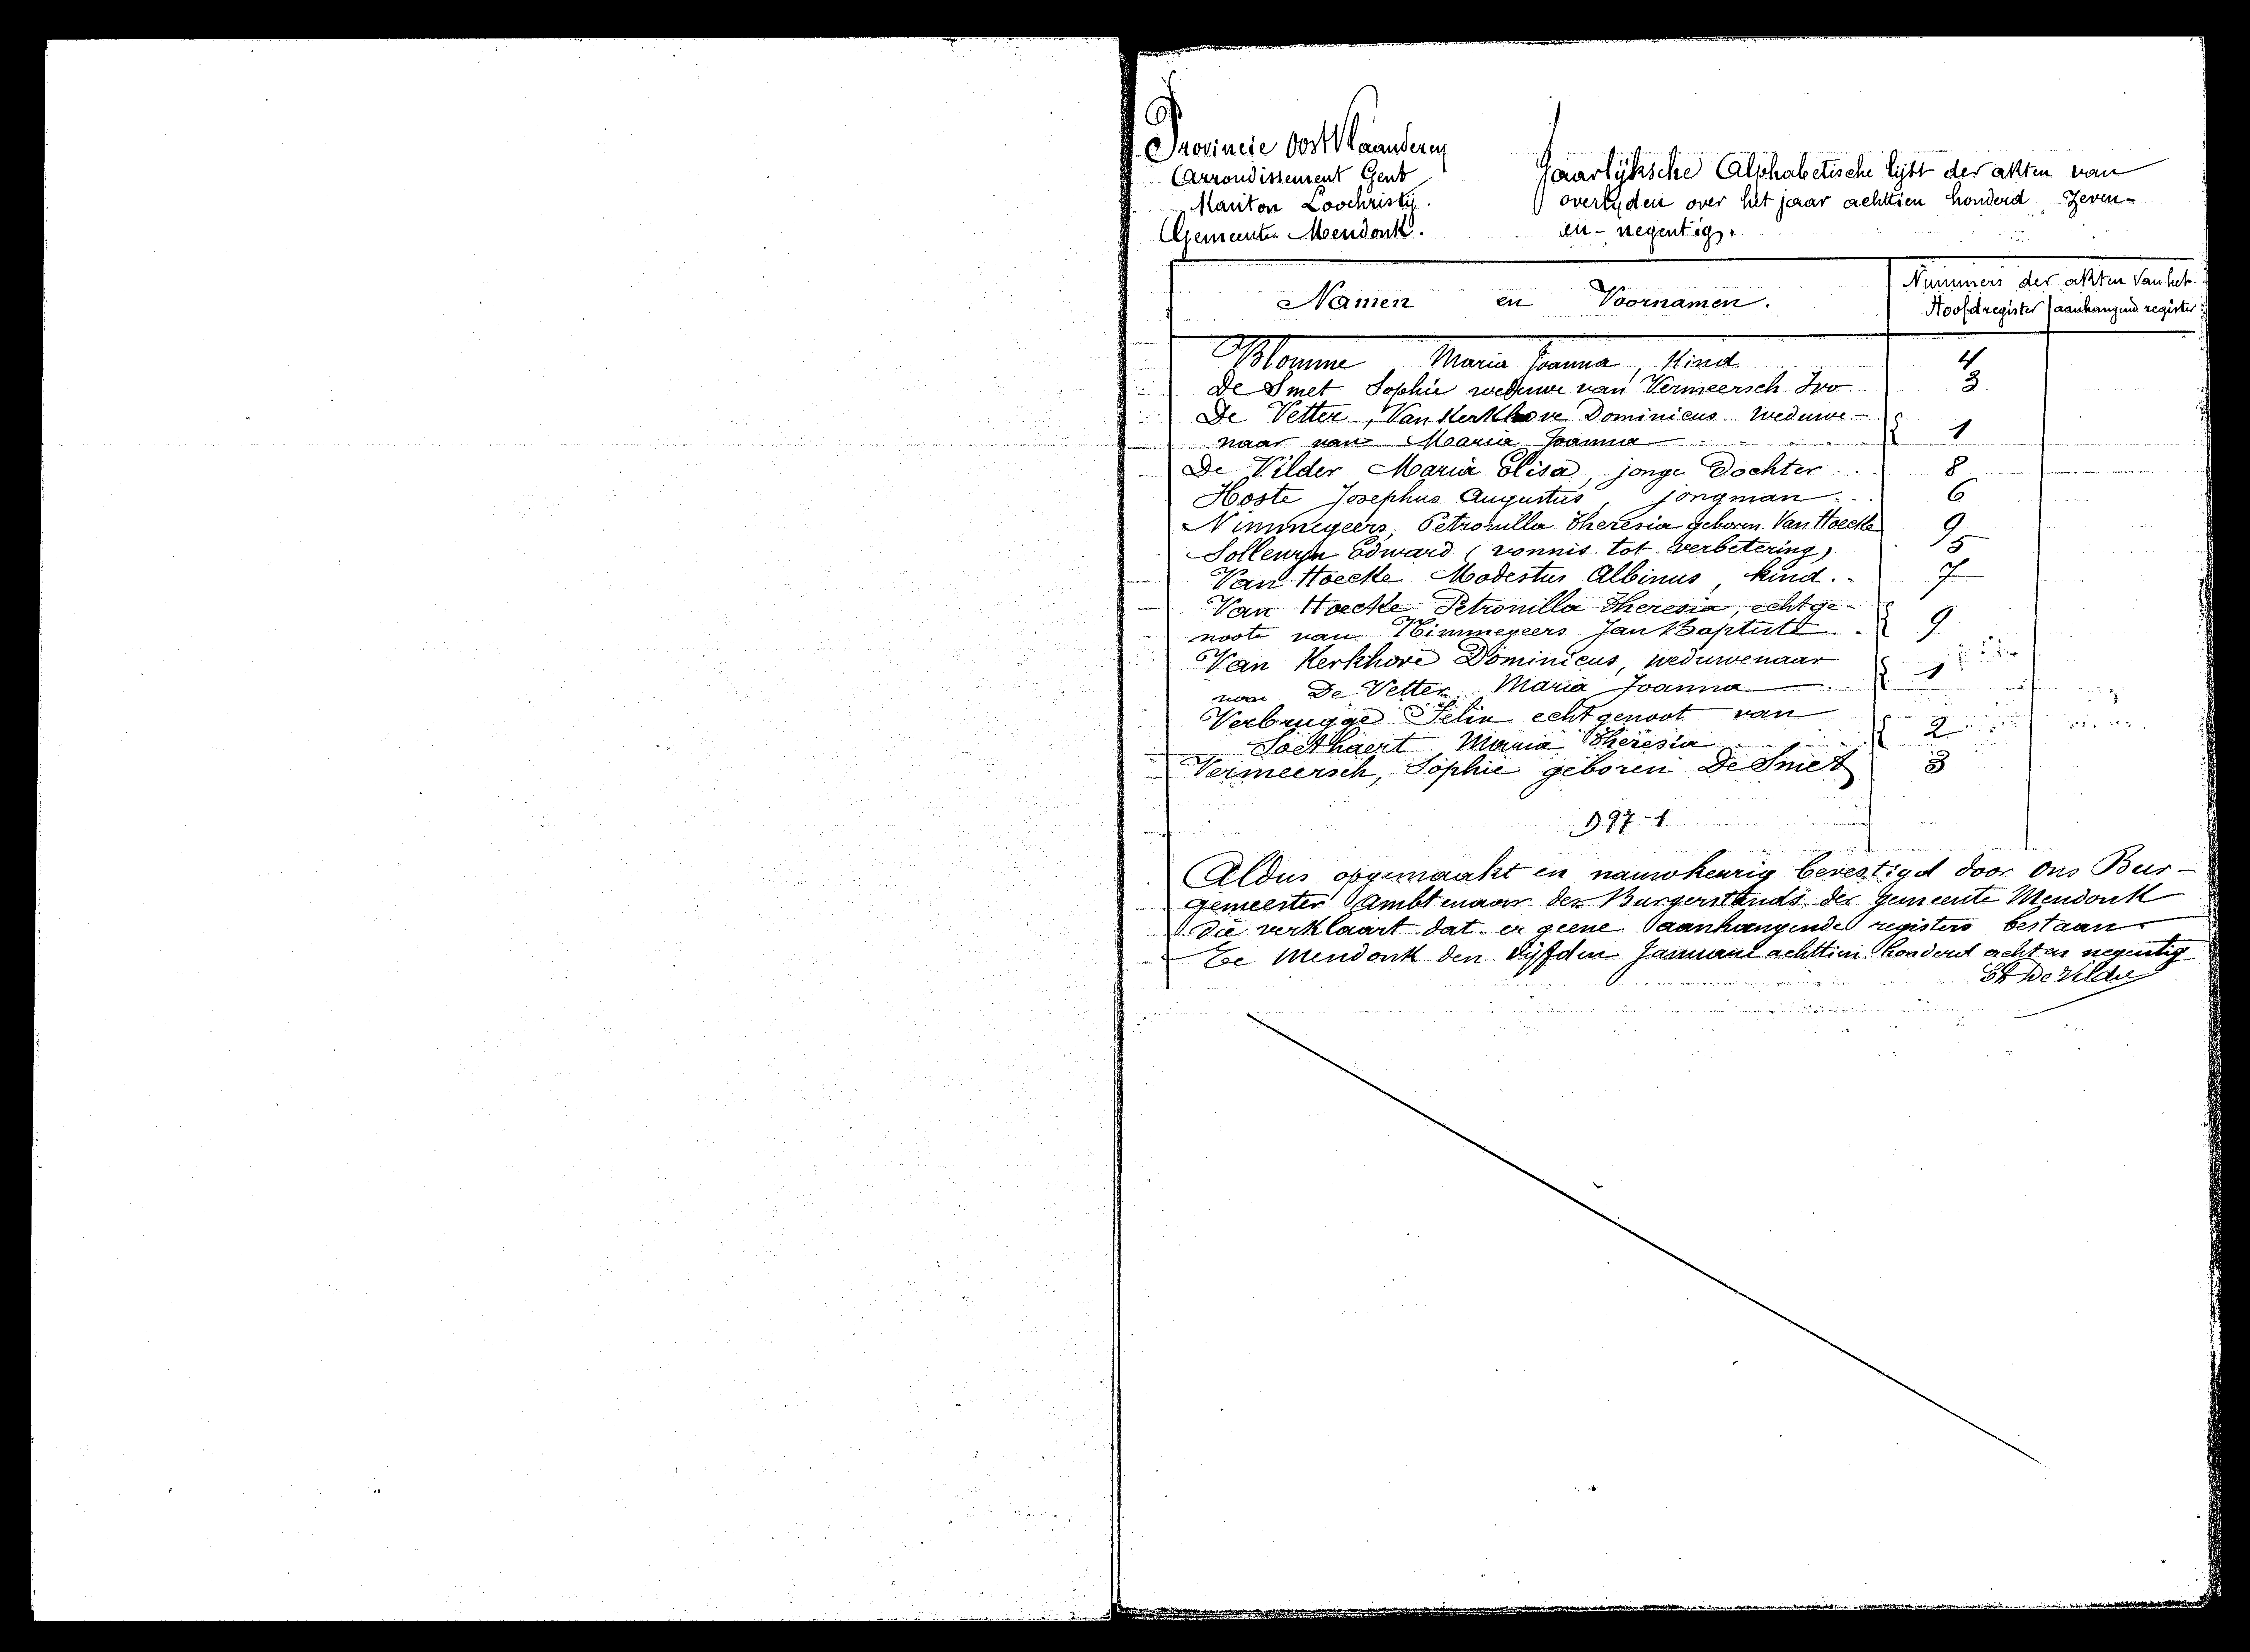 Provincie Oost Vlaanderen
Arrondissement Gent
Kanton Loochristij.
Gemeente Mendonk.
Jaarlijksche Alphabetische lijst der akten van
overlyden over het jaar achttien honderd Zeven-
en-negentig.
Namen en Voornamen.
Nummers der akten van het
Hoofdregister aanhangend register
Blomme Maria Joanna, Kind 4
De Smet Sophie weduwe van Vermeersch Ivo 3
De Vetter, Van Kerkhove Dominicus weduwe-
naar van Maria Joanna 1
De Vilder Maria Elisa, jonge Dochter 8
Hoste Josephus Augustus, jongman 6
Nimmegeers, Petronilla Theresia geboren Van Hoecke 9
Solleuryn Edward (vonnis tot verbetering) 5
Van Hoecke Modestus Albinus, kind. 7
Van Hoecke Petronilla Theresia, echtge-
noote van Nimmegeers Jan Baptist. 9
Van Kerkhove Dominicus, weduwenaar
van De Vetter Maria Joanna 1
Verbrugge Felix echtgenoot van
Soethaert Maria Theresia 2
Vermeersch, Sophie geboren De Smet 3
D.97-1
Aldus opgemaakt en nauwkeurig bevestigd door Ons Bur-
gemeester Ambtenaar der Burgerstands der gemeente Mendonk
die verklaart dat er geene aanhangende registers bestaan
Te Mendonk den vijfden Januari achttien honderd acht en negentig
De Vilder